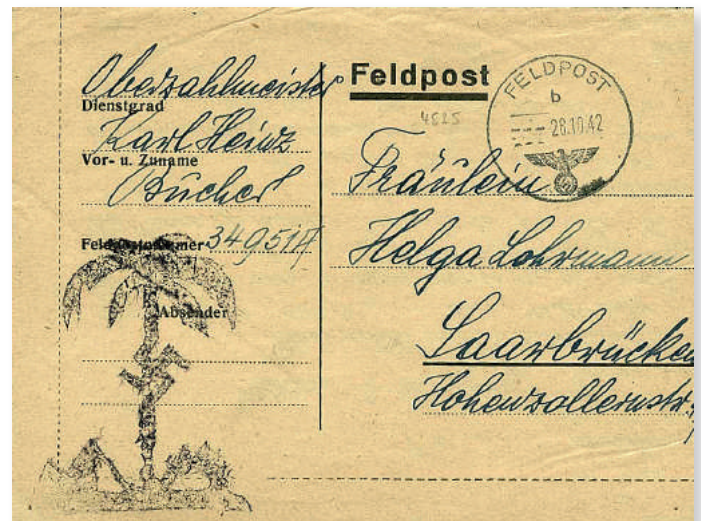 Oberzahlmeister
Dienstgrad
Karl Heinz
Vor- u. Zuname
Bücher
Feldpostnummer 34951A
Absender
Feldpost
4625
FELDPOST
b
28.10.42
Fräulein
Helga Lohrmann
Saarbrücken
Hohenzollernstr.